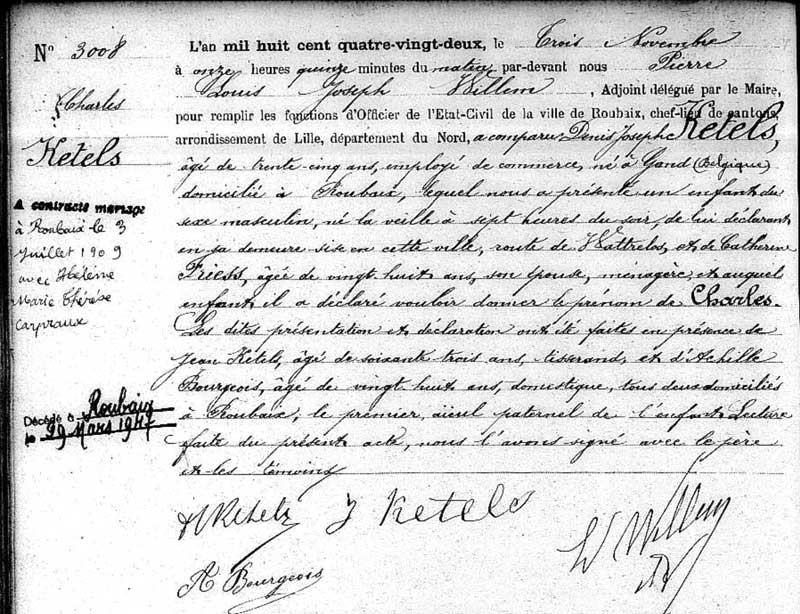 N° 3008
Charles
Ketels
A contracté mariage
à Roubaix le 3
juillet 1909
avec Hélène
Marie Thérèse
Carpraux
Décédé à Roubaix
le 29 Mars 1947
L'an mil huit cent quatre-vingt-deux, le Trois Novembre
à onze heures quinze minutes du matin par-devant nous Pierre
Louis Joseph Willem, Adjoint délégué par le Maire,
pour remplir les fonctions d'Officier de l'Etat-Civil de la ville de Roubaix, chef-lieu de canton,
arrondissement de Lille, département du Nord, a comparu Denis Joseph Ketels,
âgé de trente cinq ans, employé de commerce, né à Gand (Belgique)
domicilié à Roubaix, lequel nous a présenté un enfant du
sexe masculin, né la veille à sept heures du soir, de lui déclarant
en sa demeure sise en cette ville, route de Wattrelos, et de Catherine
Friess, âgée de vingt huit ans, son épouse, ménagère, et auquel
enfant il a déclaré vouloir donner le prénom de Charles.
Les dites présentation et déclaration ont été faites en présence de
Jean Ketels, âgé de soixante trois ans, tisserand, et d'Achille
Bourgeois, âgé de vingt huit ans, domestique, tous deux domiciliés
à Roubaix, le premier, aïeul paternel de l'enfant. Lecture
faite du présent acte, nous l'avons signé avec le père
et les témoins
Ketels J Ketels
A Bourgeois
Willem